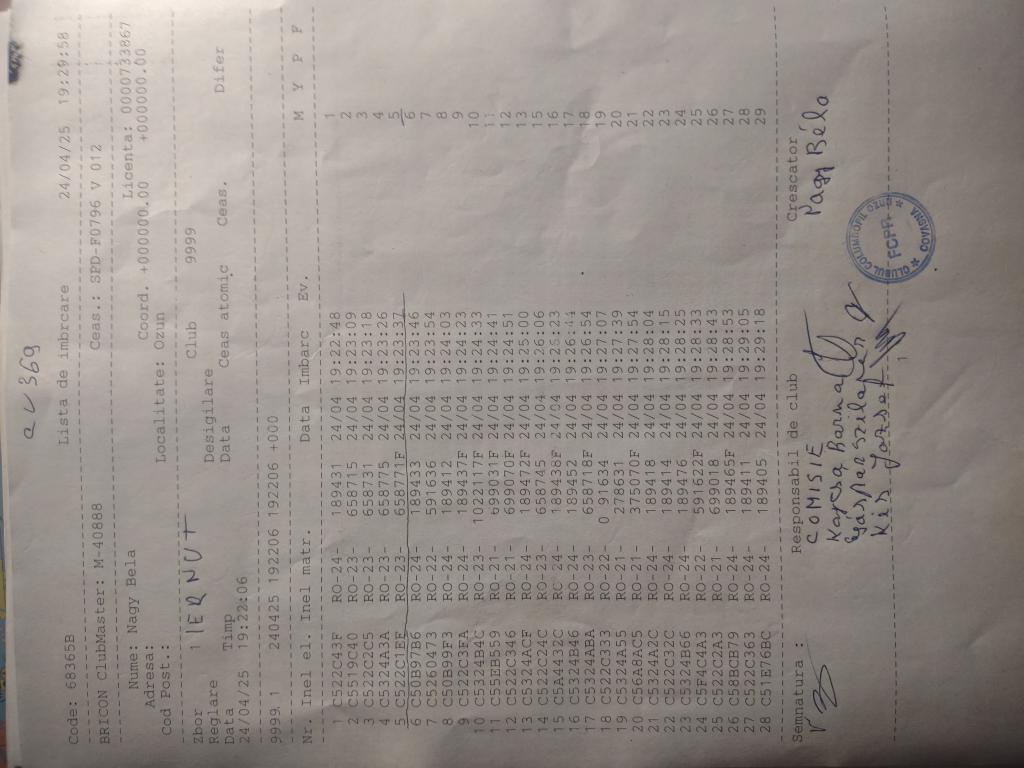 a c 369
Lista de imbrcare 24/04/25 19:29:58
Code: 68365B
BRICON ClubMaster: M-40888 Ceas.: SPD-F0796 V 012
Nume: Nagy Bela Licenta: 0000733867
Adresa: Coord. +000000.00 +000000.00
Cod Post.: Localitate: Ozun
Zbor Club
1 IERNUT 9999
Reglare Desigilare
Data Timp Data Ceas atomic Ceas. Difer
24/04/25 19:22:06
9999,1 240425 192206 192206 +000
Nr. Inel el. Inel matr. Data Imbarc Ev. M Y P F
1 C522C43F RO-24- 189431 24/04 19:22:48 1
2 C5519C40 RO-23- 658715 24/04 19:23:09 2
3 C522C2C5 RO-23- 658731 24/04 19:23:18 3
4 C5324A3A RO-23- 658775 24/04 19:23:26 4
5 C522C1EF RO-23- 658771F 24/04 19:23:37 5
6 C50B97B6 RO-24- 189433 24/04 19:23:46 6
7 C5620473 RO-22- 591636 24/04 19:23:54 7
8 C50B99F3 RO-24- 189412 24/04 19:24:03 8
9 C522C3FA RO-24- 189437F 24/04 19:24:23 9
10 C5324B4C RO-23- 1022117F 24/04 19:24:33 10
11 C55EB559 RO-21- 699031F 24/04 19:24:41 11
12 C522C346 RO-21- 699070F 24/04 19:24:51 12
13 C5324ACF RO-24- 189472F 24/04 19:25:00 13
14 C522C24C RO-23- 658745 24/04 19:26:06 15
15 C5A4432C RO-24- 189438F 24/04 19:25:23 16
16 C5324B46 RO-24- 189452 24/04 19:26:44 17
17 C5324ABA RO-23- 658718F 24/04 19:26:54 18
18 C522C333 RO-22- 0 591634 24/04 19:27:07 19
19 C5324A55 RO-21- 278631 24/04 19:27:39 20
20 C56A8AC5 RO-21- 375070F 24/04 19:27:54 21
21 C5324A2C RO-24- 189418 24/04 19:28:04 22
22 C522C32C RO-24- 189414 24/04 19:28:15 23
23 C5324B26 RO-24- 189476 24/04 19:28:25 24
24 C5F4C4A3 RO-22- 591622F 24/04 19:28:33 25
25 C522C2A3 RO-21- 699018 24/04 19:28:43 26
26 C58BCB79 RO-24- 189465F 24/04 19:28:53 27
27 C522C363 RO-24- 189411 24/04 19:29:05 28
28 C51E76BC RO-24- 189405 24/04 19:29:18 29
Semnatura : Responsabil de club Crescator
COMISIE Nagy Béla
Kapcsa Barna
Gáspár Szilapár
Kis Jozsef
CLUBUL COLUMBOFIL OZUN
FCPR
COVASNA